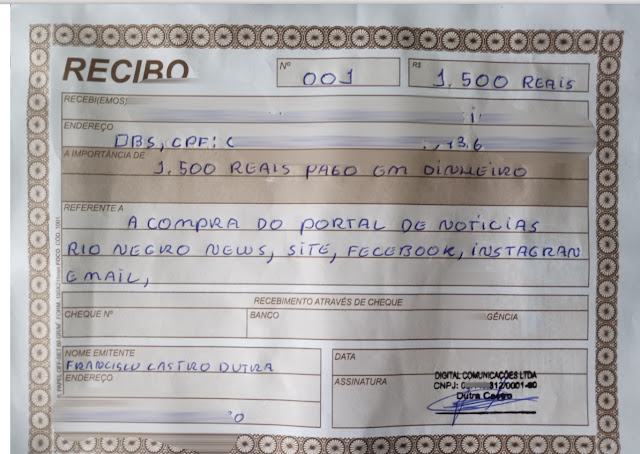 RECIBO
Nº 001
R$ 1,500 REAIS
RECEBI(EMOS)
ENDEREÇO
OBS, CPF:
A IMPORTÂNCIA DE
1,500 REAIS PAGO EM DINHEIRO
REFERENTE A
A COMPRA DO PORTAL DE NOTICIAS
RIO NEGRO NEWS, SITE, FECEBOOK, INSTAGRAN
EMAIL,
RECEBIMENTO ATRAVÉS DE CHEQUE
CHEQUE Nº
BANCO
GÊNCIA
NOME EMITENTE
FRANCISCO CASTRO DUTRA
ENDEREÇO
DATA
ASSINATURA
DIGITAL COMUNICAÇÕES LTDA
CNPJ:
Dutra Castro